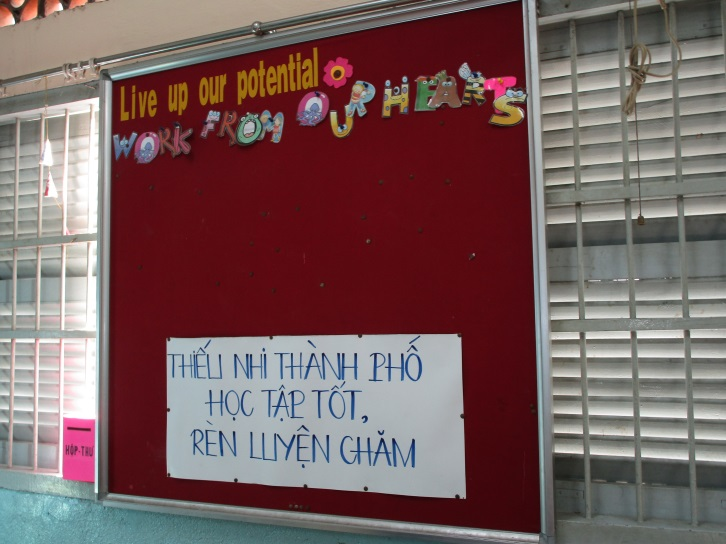 Live up our potential
WORK FROM OUR HEARTS
THIẾU NHI THÀNH PHỐ
HỌC TẬP TỐT,
RÈN LUYỆN CHĂM
HỘP-THƯ